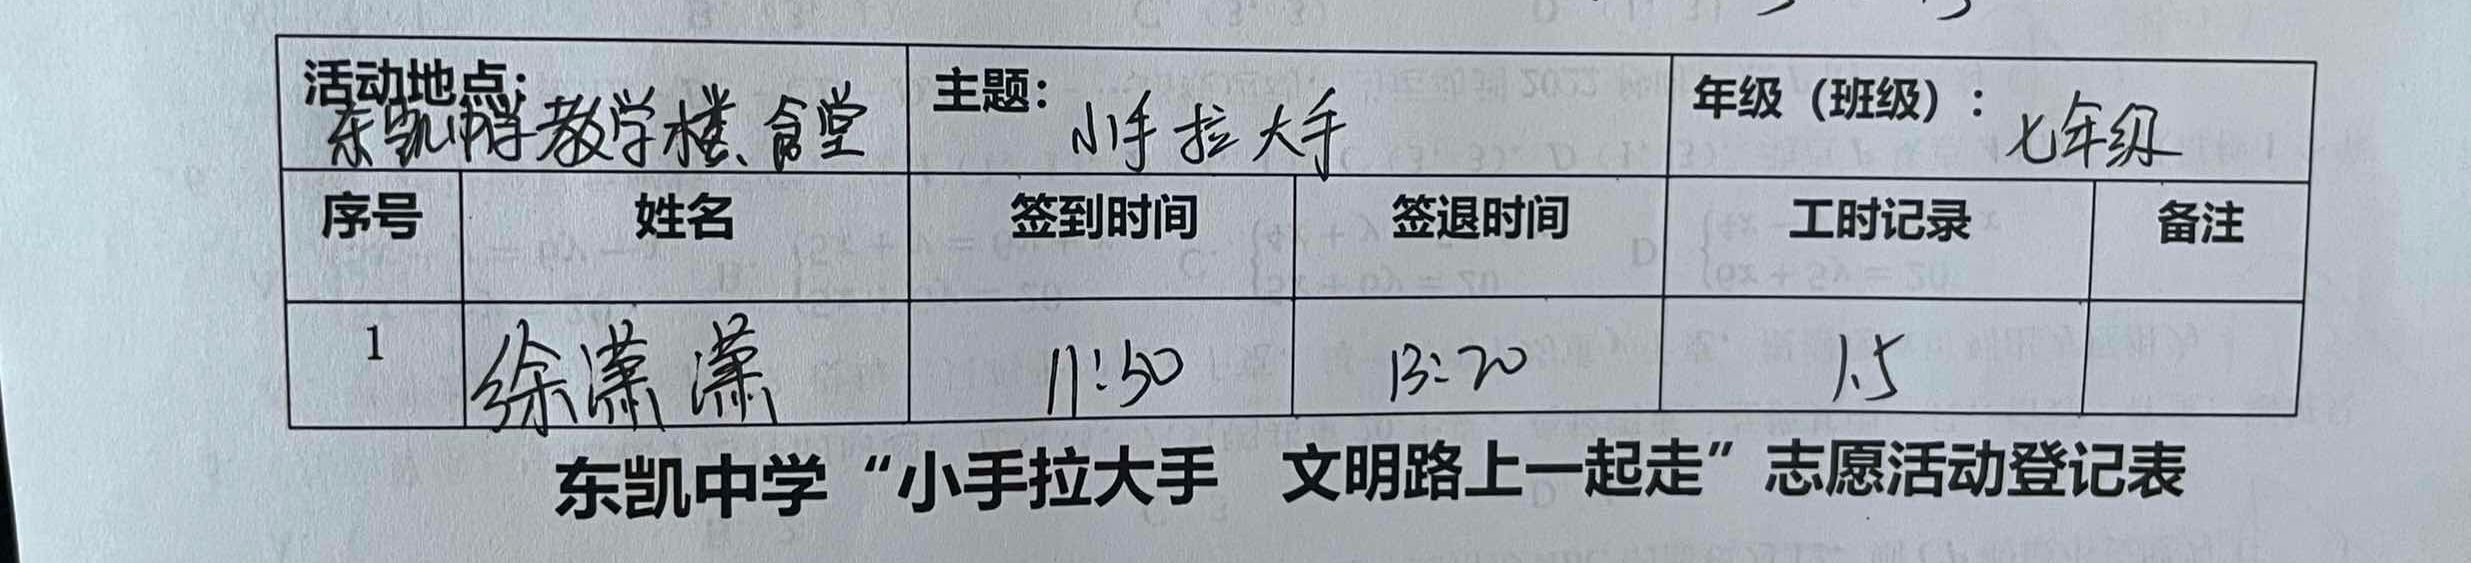 活动地点：
东凯中学教学楼、食堂
主题： 小手拉大手
年级（班级）： 七年级
序号 姓名 签到时间 签退时间 工时记录 备注
1 徐潇潇 11:50 13:20 1.5
东凯中学“小手拉大手 文明路上一起走”志愿活动登记表